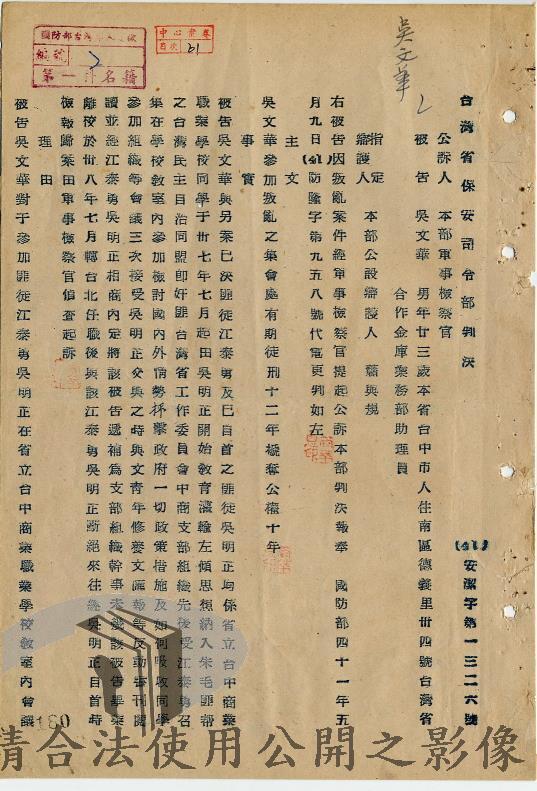 吳文華
台灣省保安司令部判決
(41)安潔字第一三二六號
公訴人 本部軍事檢察官
被告 吳文華 男年廿三歲本省台中市人住南區德義里卅四號台灣省
合作金庫業務部助理員
指定辯護人 本部公設辯護人 蕭與規
右被告因叛亂案件經軍事檢察官提起公訴本部判決報奉 國防部四十一年五
月九日(41)防隆字第九五八號代電更判如左
主文
吳文華參加叛亂之集會處有期徒刑十二年褫奪公權十年
事實
被告吳文華與另案已決匪徒江泰勇及已自首之匪徒吳明正均係省立台中商業
職業學校同學于卅七年七月起由吳明正開始教育灌輸左傾思想納入朱毛匪幫
之台灣民主自治同盟即奸匪台灣省工作委員會中商支部組織先後受江泰勇召
集在學校教室內參加檢討國內外情勢抨擊政府一切政策措施及如何吸收同學
參加組織等會議三次接受吳明正交與之時與文青年修養文匯報等反動書刊閱
讀並經江泰勇吳明正相商內定將該被告遞補為支部組織幹事未幾該被告畢業
離校於卅八年七月轉台北任職後與該江泰勇吳明正斷絕來往經吳明正自首時
檢報歸案由軍事檢察官偵查起訴
理由
被告吳文華對于參加匪徒江泰勇吳明正在省立台中商業職業學校教室內會議
編號
第一件名稱
目次 21
180
請合法使用公開之影像